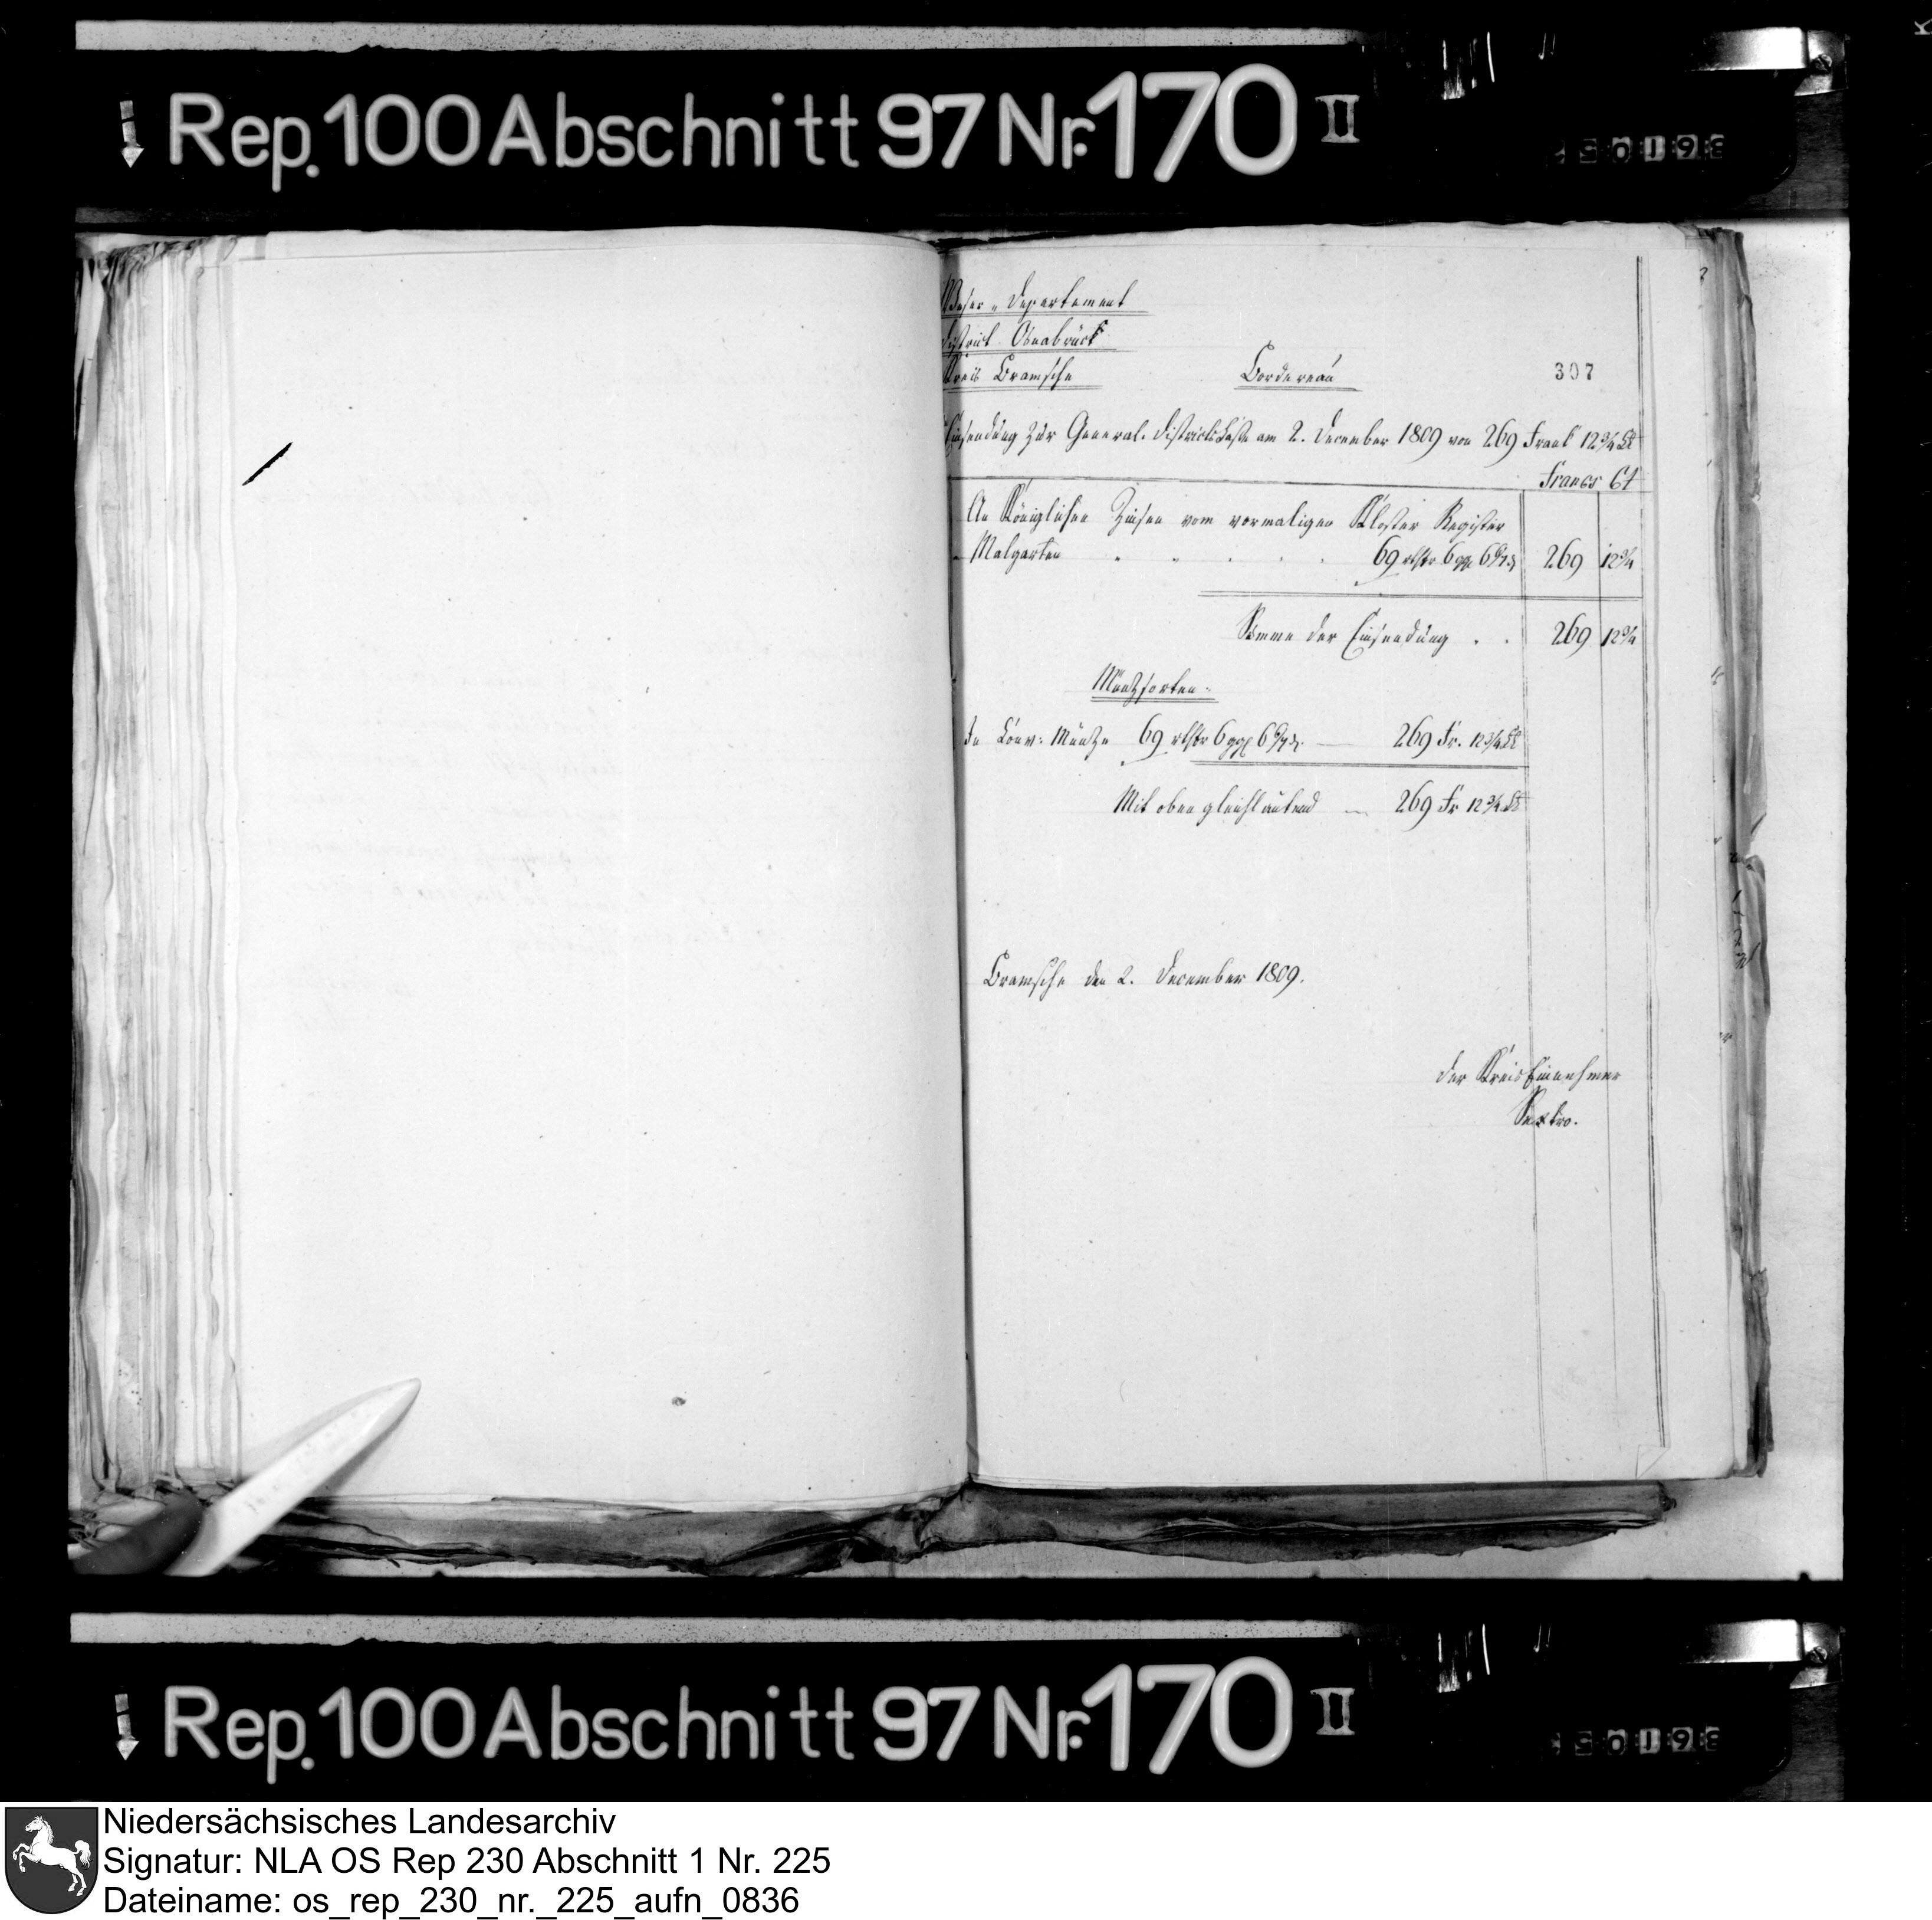 Rep. 100 Abschnitt 97 Nr. 170 II
Weser-Departement
District Osnabrück
Kreis Bramsche
Bordereau
307
Einsendung zur General-Districts Casse am 2. December 1809 von 269 Frank 12 3/4 Ct
Francs Ct
An Königlichen Zinsen vom vormaligen Kloster Register
Malgarten . . . . . 69 rthlr 6 ggr 6 6/7 d 269 12 3/4
Summe der Einsendung . . 269 12 3/4
Müntzsorten
In Conv: Müntze 69 rthlr 6 ggr 6 6/7 d. — 269 Fr. 12 3/4 Ct
Mit oben gleichlautend — 269 Fr 12 3/4 Ct
Bramsche den 2. December 1809.
der Kreis Einnehmer
Rep. 100 Abschnitt 97 Nr. 170 II
Niedersächsisches Landesarchiv
Signatur: NLA OS Rep 230 Abschnitt 1 Nr. 225
Dateiname: os_rep_230_nr._225_aufn_0836